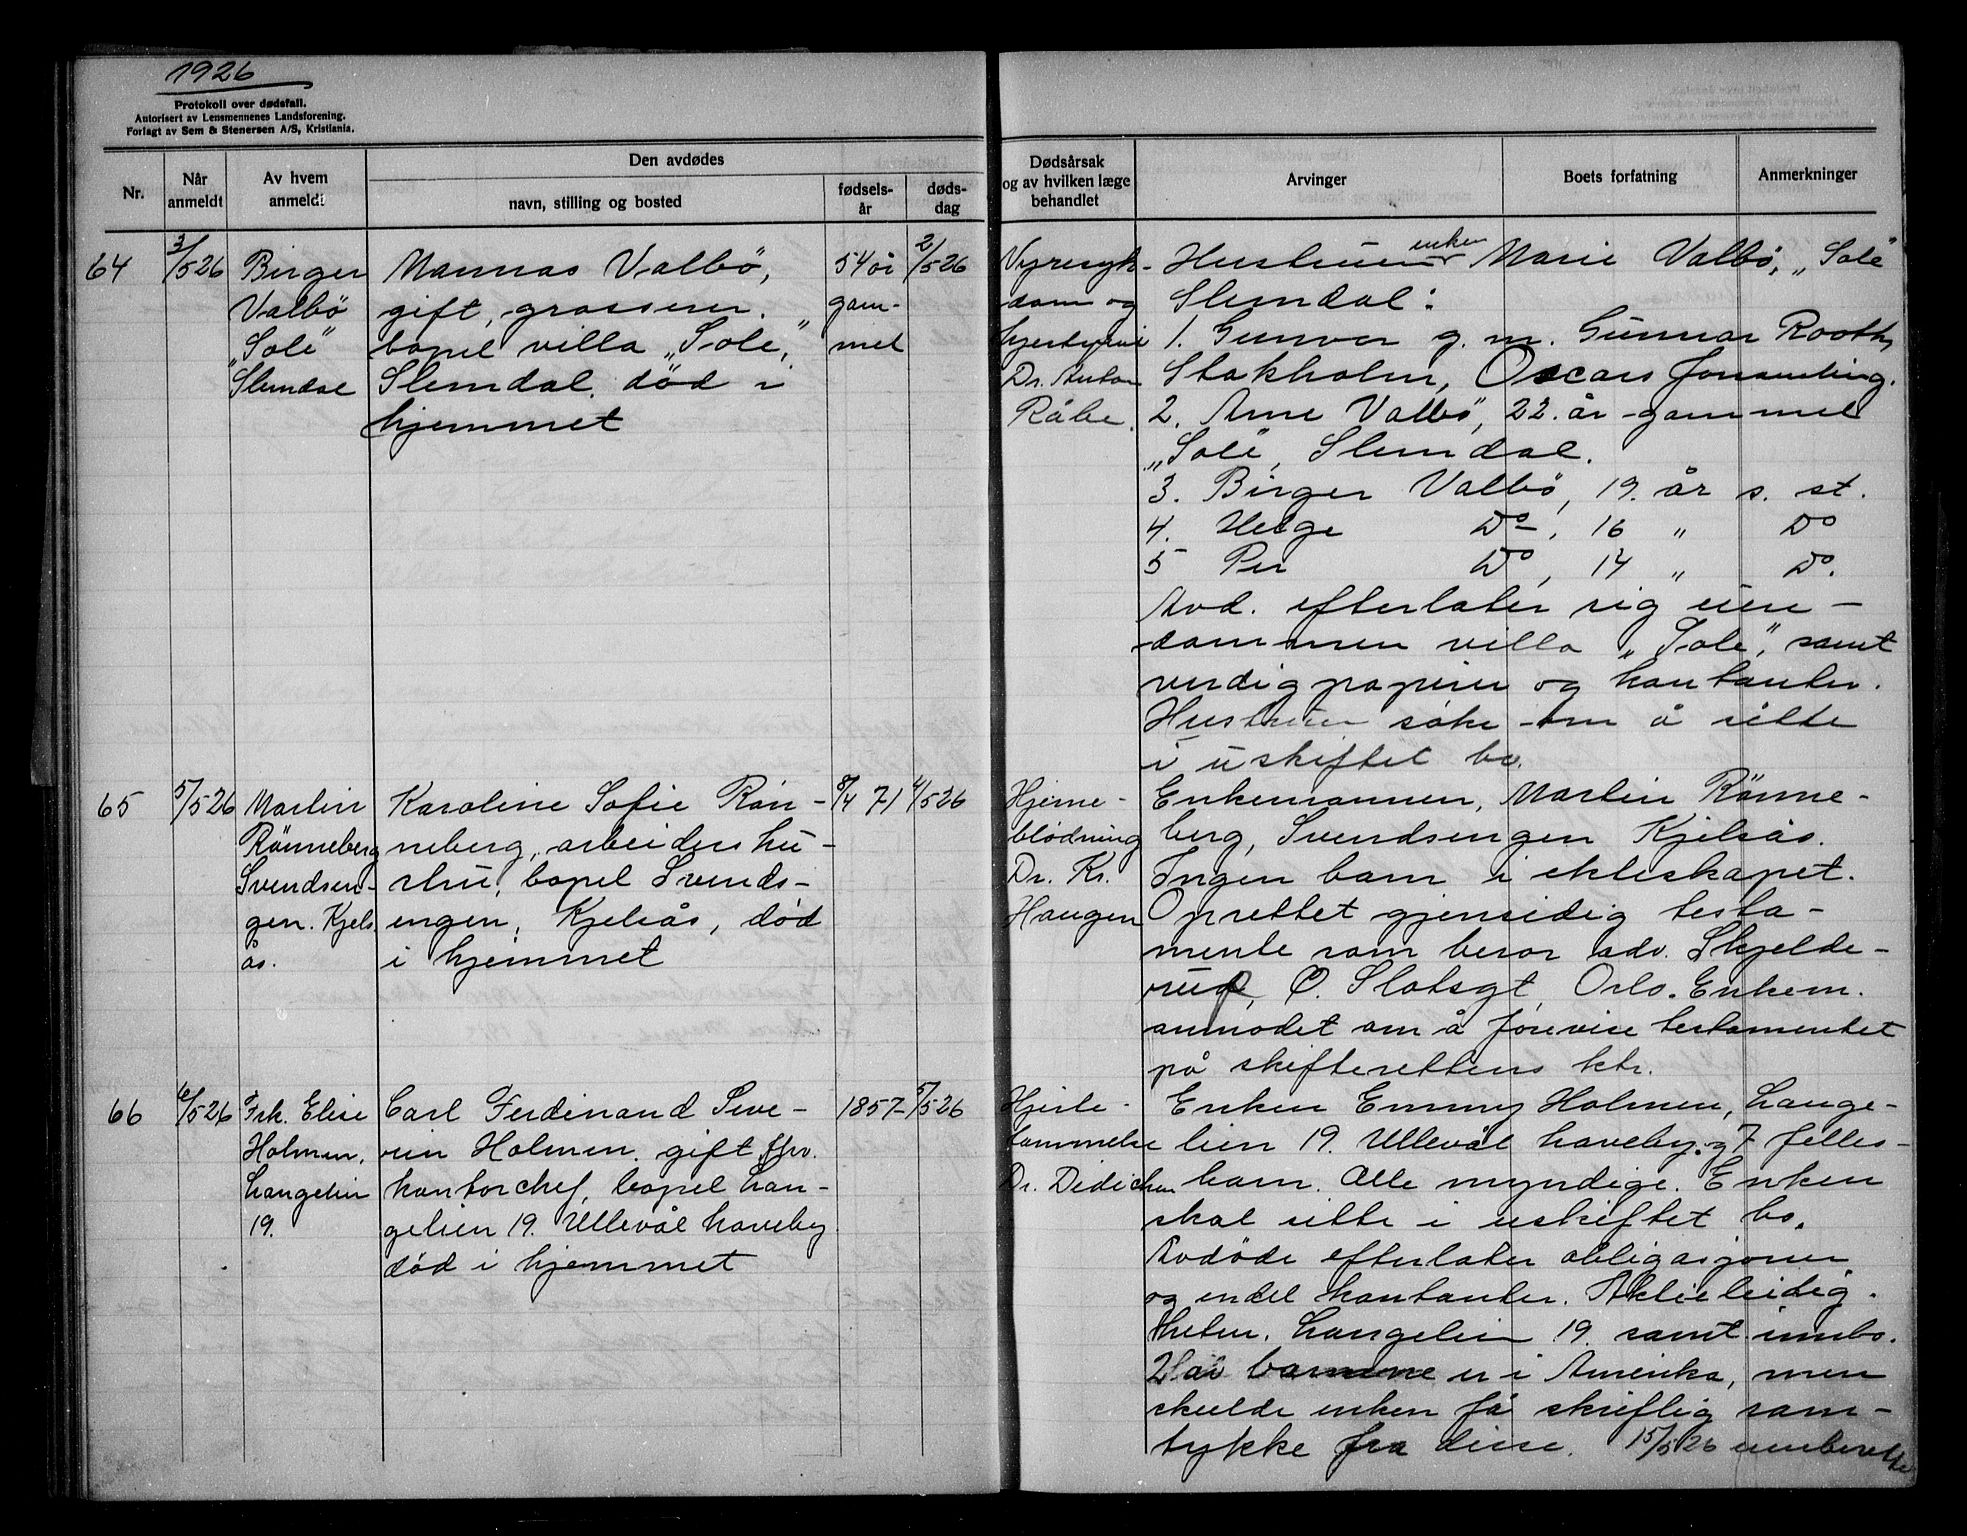 1926
Protokoll over dødsfall.
Autorisert av Lensmennenes Landsforening.
Forlagt av Sem & Stenersen A/S, Kristiania.
Nr.
Når anmeldt
Av hvem anmeldt
Den avdødes
navn, stilling og bosted
fødsels-år
døds-dag
Dødsårsak og av hvilken læge behandlet
Arvinger
Boets forfatning
Anmerkninger
64
3/5 26
Birger
Valbö
"Sole"
Slemdal
Mannas Valbö,
gift, grosserer.
bopel villa "Sole",
Slemdal. död i
hjemmet
54 år
gam-
mel
2/5 26
Nyresyk-
dom og
Dr. Anton
Råbe.
Hustruen enken Marie Valbö, "Sole"
Slemdal:
1. Gunvor g. m. Gunnar Rooth,
Stokholm, Oscars Forsamling.
2. Arne Valbö, 22. år gammel
"Sole", Slemdal.
3. Birger Valbö, 19. år s. st.
4. Helge Do, 16 " Do
5 Per Do, 14 " Do.
Avd. efterlater sig eien-
dommen villa "Sole", samt
verdipapirer og kontanter.
Hustruen söke om å sitte
i uskiftet bo.
65
5/5 26
Martin
Rönneberg
Svendsen-
gen. Kjels
ås.
Karoline Sofie Rön-
neberg, arbeidershu-
stru, bopel Svends-
engen, Kjelsås, död
i hjemmet
8/4 71
4/5 26
Hjerne-
blödning
Dr. Kr.
Haugen
Enkemannen, Martin Rönne-
berg, Svendsengen Kjelsås.
Ingen barn i ekteskapet.
Oprettet gjensidig testa-
mente som beror adv. Skjelde-
rup, Ö. Slotsgt, Oslo. Enkem.
anmodet om å forevise testamentet
på skifterettens ktr.
66
6/5 26
Frk. Elise
Holmen,
Langelien
19.
Carl Ferdinand Seve-
rin Holmen. gift, fhv.
kontorchef, bopel Lan-
gelien 19. Ullevål haveby
död i hjemmet
1857
5/5 26
Hjerte-
lammelse
Dr. Didichen
Enken Emmy Holmen, Lange-
lien 19. Ullevål haveby og 7 felles-
barn. Alle myndige. Enken
skal sitte i uskiftet bo.
Avdöde efterlater obligasjoner
og endel kontanter. Aktieleilig-
heten. Langelien 19. samt innbo.
2 av barnene er i Amerika, men
skulde enken få skriftlig sam-
tykke fra disse. 15/5 26